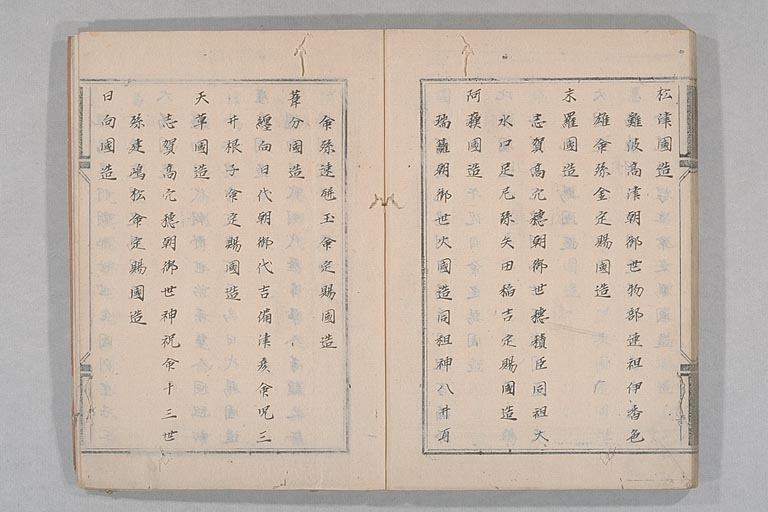 松津國造
難波高津朝御世物部連祖伊香色
雄命孫金定賜國造
末羅國造
志賀高穴穂朝御世穂積臣同祖大
水口足尼孫矢田稲吉定賜國造
阿蘇國造
瑞籬朝御世火國造同祖神八井耳
命孫速瓶玉命定賜國造
葦分國造
纏向日代朝御代吉備津彦命児三
井根子命定賜國造
天草國造
志賀高穴穂朝御世神祝命十三世
孫建嶋松命定賜國造
日向國造